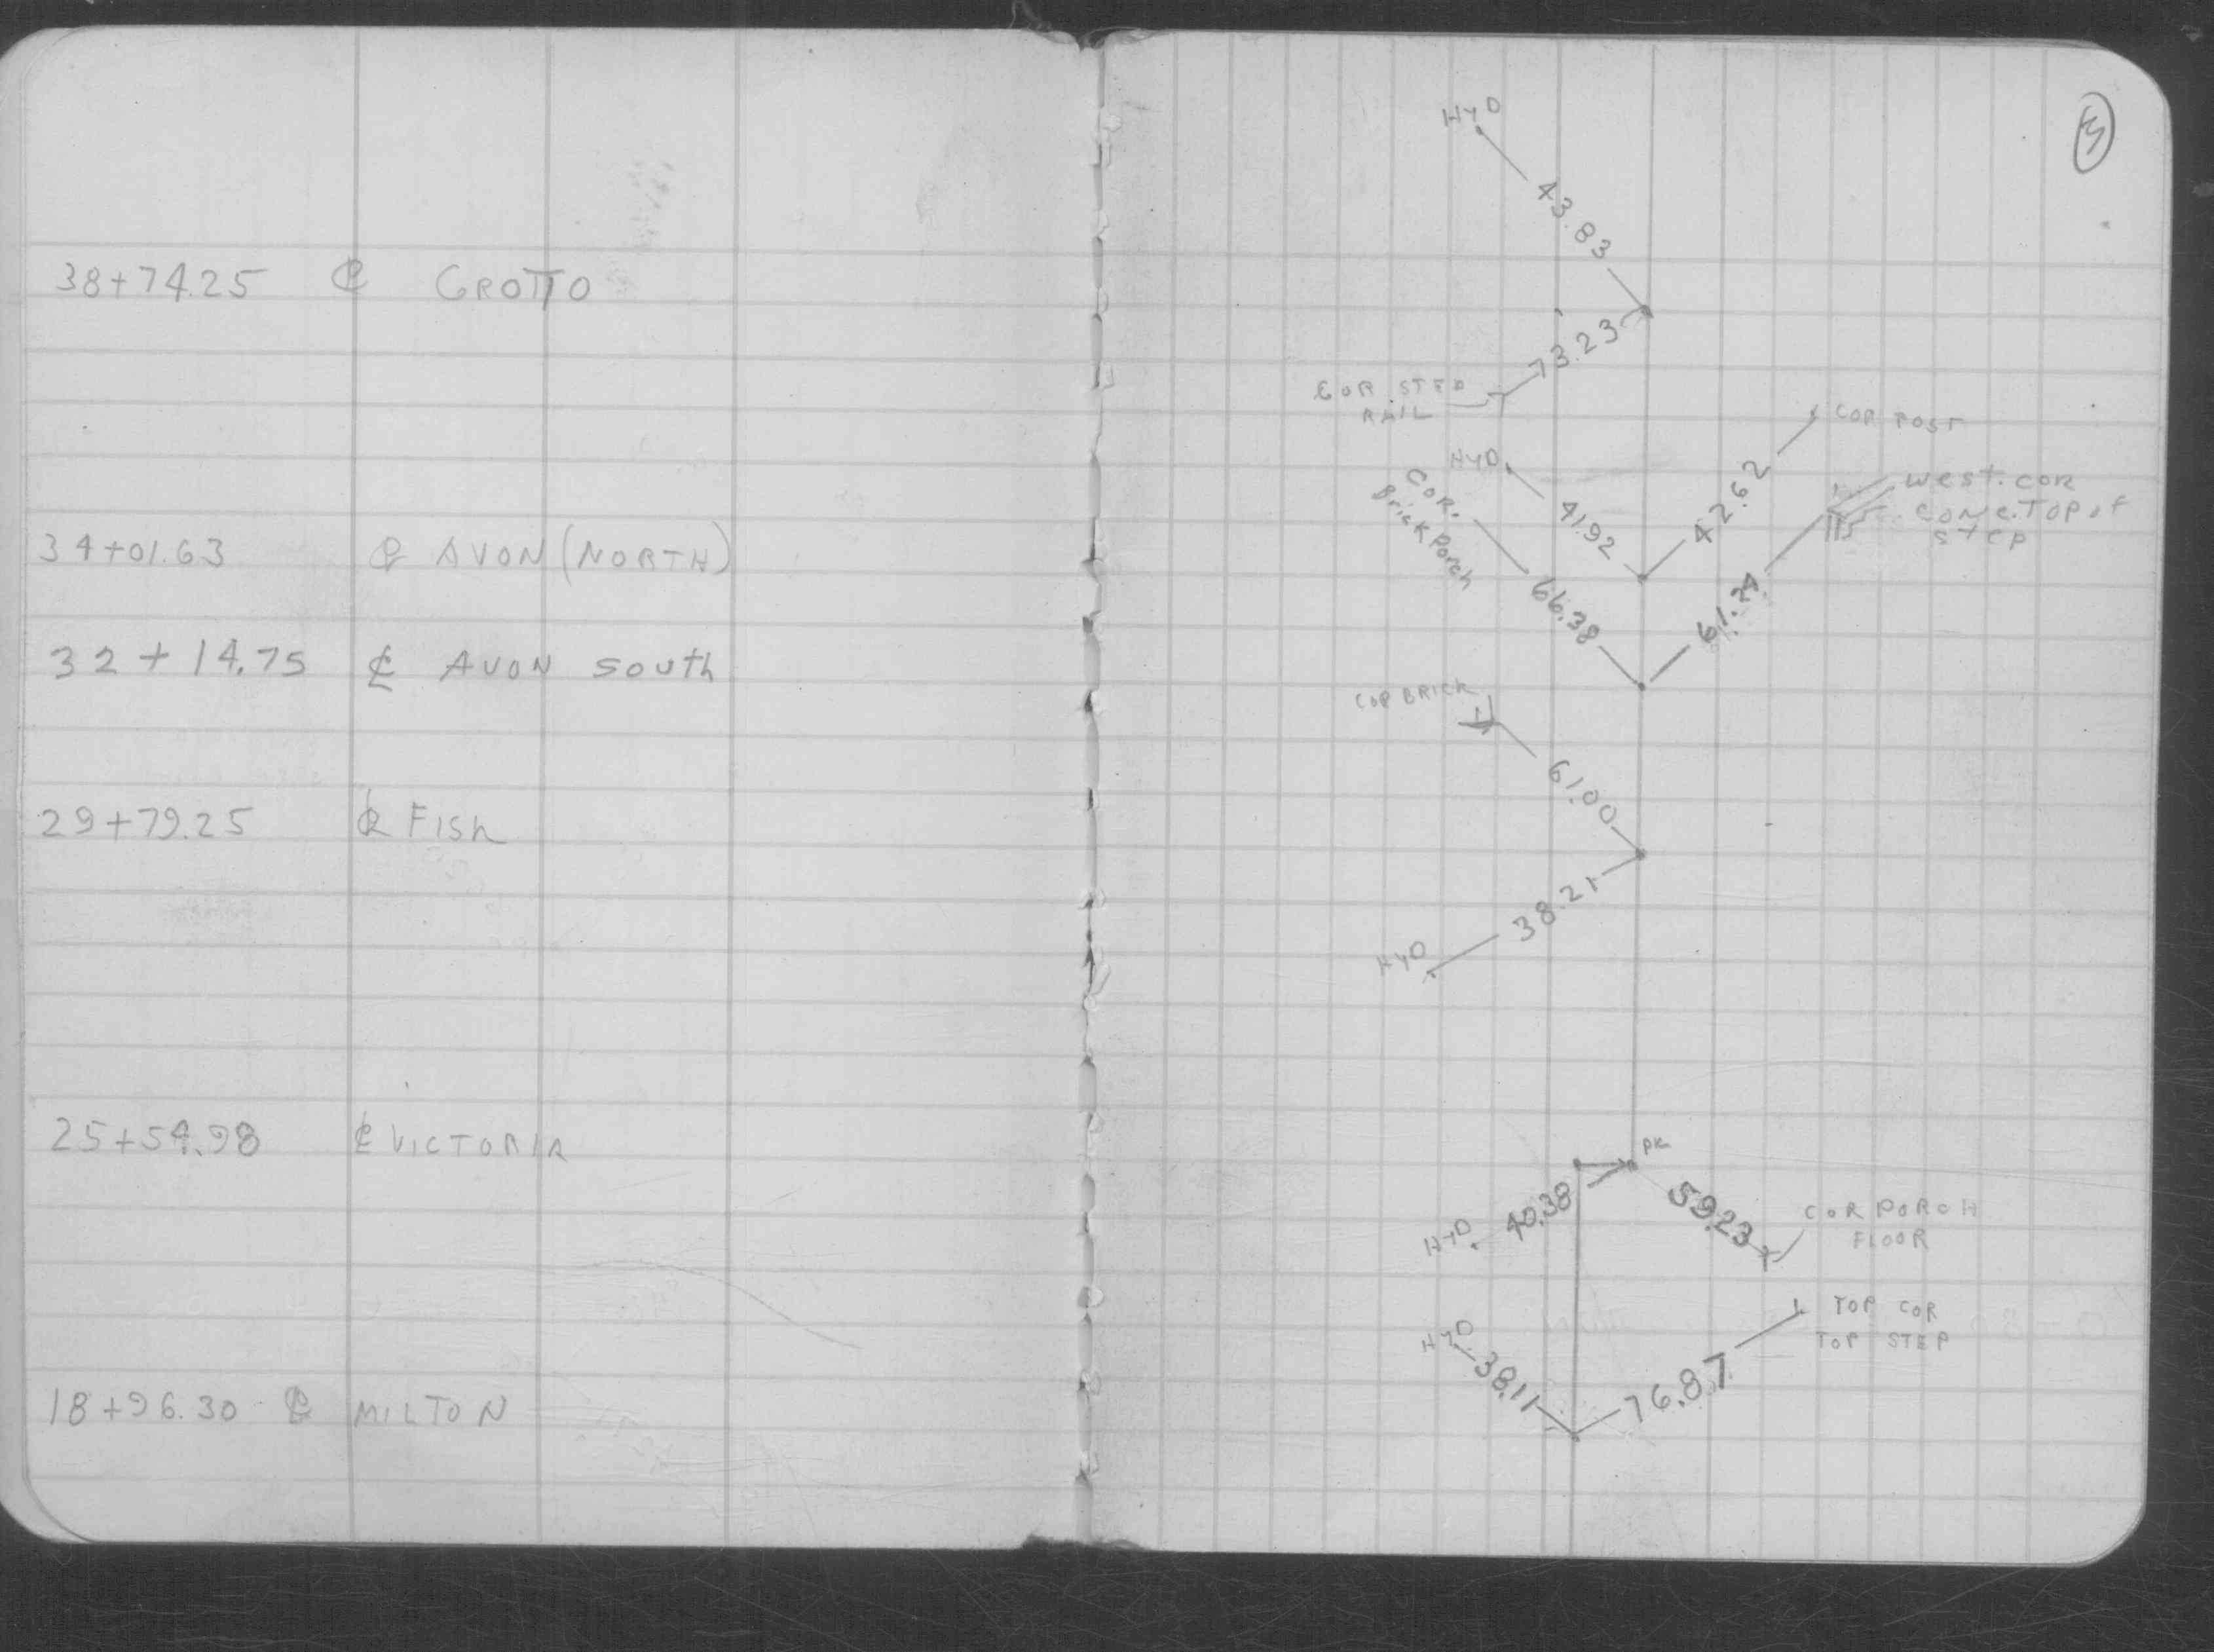 38+74.25 ℄ GROTTO
34+01.63 ℄ AVON (NORTH)
32+14.75 ℄ AVON South
29+79.25 ℄ Fish
25+54.98 ℄ VICTORIA
18+96.30 ℄ MILTON
3
HyD
43.83
73.23
COR STEP
RAIL
COR POST
HyD
41.92
42.62
COR.
Brick Porch
66.38
61.24
west. COR
CONC. TOP of
step
COR BRICK
61.00
38.21
HyD
PK
40.38
HyD
59.23
COR PORCH
FLOOR
HyD
38.11
76.87
TOP COR
TOP STEP